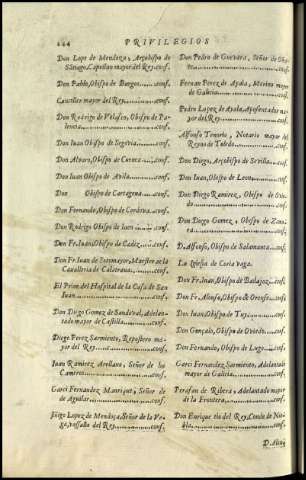 244 PRIVILEGIOS
Don Lope de Mendoza, Arçobispo de
Sãtiago, Capellan mayor del Rey. conf.
Don Pablo, Obispo de Burgos. conf.
Canciller mayor del Rey.
Don Rodrigo de Velasco, Obispo de Pa-
lencia. conf.
Don Iuan Obispo de Segovia. conf.
Don Alvaro, Obispo de Cuenca. conf.
Don Iuan Obispo de Avila. conf.
Don Obispo de Cartagena. conf.
Don Fernando, Obispo de Cordova. conf.
Don Rodrigo Obispo de Iaen conf.
Don Fr. Iuan, Obispo de Cadiz. conf.
Don Fr. Iuan de Sotomayor, Maestre de la
Cavalleria de Calatrava. conf.
El Prior del Hospital de la Casa de San
Iuan conf.
Don Diego Gomez de Sandoval, Adelan-
tado mayor de Castilla. conf.
Diego Perez Sarmiento, Repostero ma-
yor del Rey. conf.
Iuan Ramirez Arellano, Señor de los
Cameros. conf.
Garci Fernandez Manrique, Señor de
de Aguilar conf.
Iñigo Lopez de Mendoza, Señor de la Ve-
ga, vassallo del Rey. conf.
Don Pedro de Guevara, Señor de Oña-
conf.
Fernan Perez de Ayala, Merino mayor
de conf.
Pedro Lopez de Ayala, Aposentador ma-
yor del Rey. conf.
Alfonso Tenorio, Notario mayor del
Reyno de Toledo. conf.
Don Diego, Arçobispo de Sevilla. conf.
Don Iuan, Obispo de Leon. conf.
Don Diego Ramirez, Obispo de Ovie-
do. conf.
Don Diego Gomez, Obispo de Zamo-
ra. conf.
D. Alfonso, Obispo de Salamanca conf.
La Iglesia de Coria vaga.
Don Fr. Iuan, Obispo de Badajoz. conf.
Don Fr. Alonso, Obispo de Orense. conf.
Don Iuan, Obispo de Tuy. conf.
Don Gonçalo, Obispo de Oviedo. conf.
Don Fernando, Obispo de Lugo. conf.
Garci Fernandez Sarmiento, Adelantado
mayor de Galicia. conf.
Perafan de Ribera, Adelantado mayor
de la Frontera. conf.
Don Enrique tio del Rey, Conde de Nie-
bla. conf.